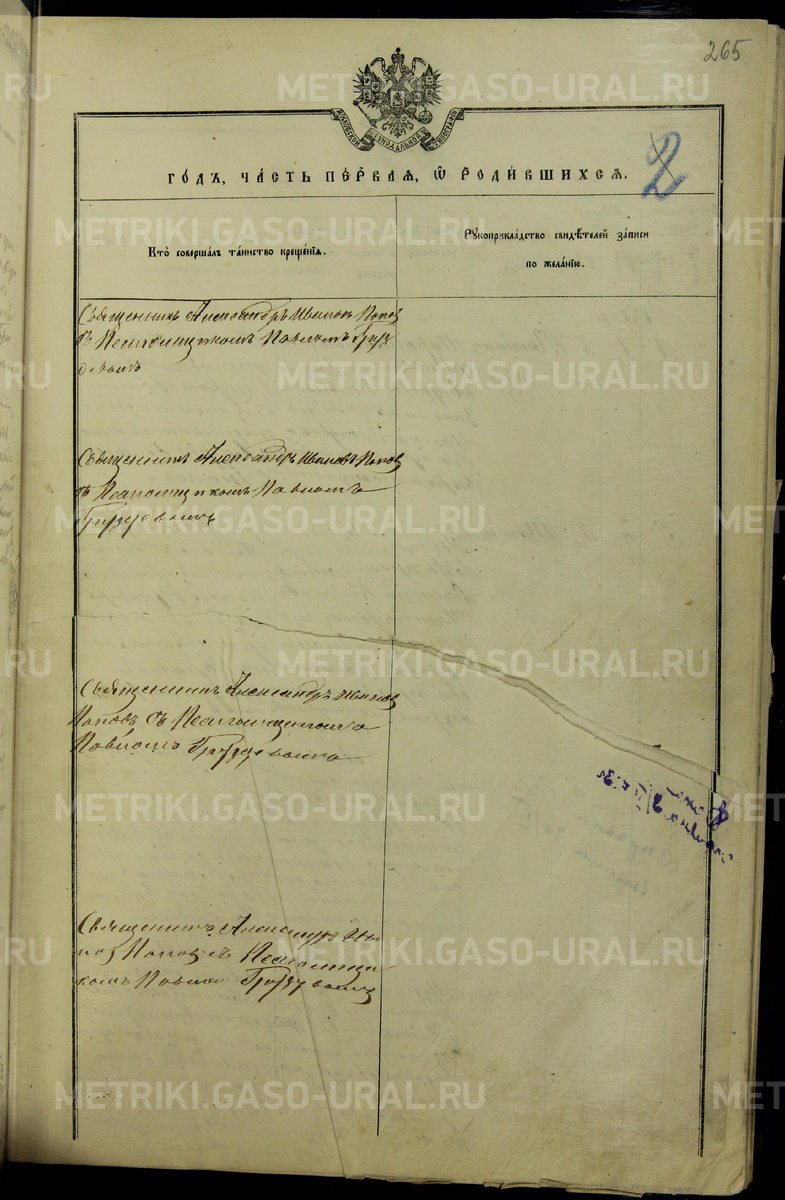 265
МОСКОВСКОЙ СѴНОДАЛЬНОЙ ТИПОГРАФІИ
2
ГО́ДЪ, ЧА́СТЬ ПЕ́РВАЯ, Ѡ҆ РОДИ́ВШИХСЯ.
Кто̀ соверша́лъ та́инство креще́нїѧ.
Рꙋкоприкла́дство свидѣ́телей за́писи
по жела́нїю.
Священникъ Александръ Ивановъ Попов
съ Псаломщикомъ Павломъ Груз
девымъ
Священникъ Александръ Ивановъ Попов
съ Псаломщикомъ Павломъ
Груздевымъ
Священникъ Александръ Иванов
Поповъ съ Псаломщикомъ
Павломъ Груздевымъ
Священникъ Александръ Ива
нов Попов съ Псаломщи
комъ Павлом Груздевымъ
METRIKI.GASO-URAL.RU